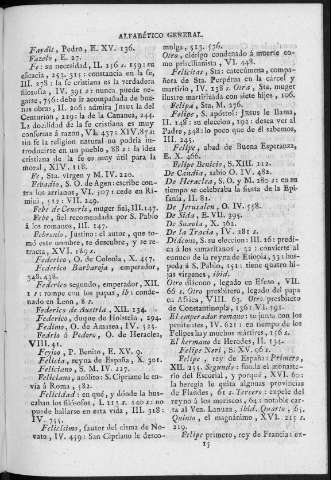 ALFABÉTICO GENERAL.
Faydit, Pedro, E. XV. 136.
Fazolo, E. 27.
Fe: su necesidad, II. 156 s. 159: su
eficacia, 253. 315: constancia en la fe,
III. 278: la fe cristiana es la verdadera
filosofía, IV. 391 s: nunca puede ne-
garse, 756: debe ir acompañada de bue-
nas obras, II. 206: admira Jesus la del
Centurion, 219: la de la Cananea, 244.
La docilidad de la fe cristiana es muy
conforme á razon, VI. 437: XIV. 87: á
un se la religion natural no podria in-
troducirse en un pueblo, 88: la idea
cristiana de la fe es muy útil para la
moral, XIV. 118.
Fe, Sta. virgen y M. IV. 220.
Febadio, S. O. de Agen: escribe con-
tra los arrianos, VI. 307: cede en Ri-
mini, 312: VII. 249.
Febe de Cencris, muger fiel, III. 147.
Febe, fiel recomendada por S. Pablo
á los romanos, III. 147.
Febronio, Justino: el autor, que to-
mó este nombre, se descubre, y se re-
tracta, XVI. 169 s.
Federico, O. de Colonia, X. 457.
Federico Barbaroja, emperador,
348. 438.
Federico segundo, emperador, XII.
1 s: rompe con los papas, ib: conde-
nado en Leon, 8 s.
Federico de Austria, XII. 134.
Federico, duque de Holstein, 294.
Fedimo, O. de Amasea, IV. 525.
Fedrio ó Pedero, O. de Heraclea,
VIII. 41.
Feyjoo, P. Benito, E. XV. 9.
Felicia, reyna de España, X. 301.
Feliciano, S. M. IV. 227.
Feliciano, acólito: S. Cipriano le en-
via á Roma, 582.
Felicidad: en qué, y dónde la bus-
caban los filósofos, I. 215 s. 220 s: no
puede hallarse en esta vida, III. 318:
IV. 755.
Felicísimo, fautor del cisma de No-
vato, IV. 459: San Cipriano le desco-
mulga, 513. 576.
Otro, clérigo condenado á muerte co-
mo priscilianista, VI. 448.
Felicitas, Sta: catecúmena, compa-
ñera de Sta. Perpétua en la cárcel y
martirio, IV. 158 s. Otra, Sta: muger
ilustre martirizada con siete hijos, 106.
Felipa, Sta. M. 276.
Felipe, S. apóstol: Jesus le llama,
II. 148: su eleccion, 192: desea ver al
Padre, 348: lo poco que de él sabemos,
III. 245.
Felipe, abad de Buena Esperanza,
E. X. 466.
Felipe Benicio, S. XIII. 212.
De Candia, sabio O. IV. 482.
De Heraclea, S. O. y M. 280 s: en su
tiempo se celebraba la fiesta de la Epi-
fanía, II. 81.
De Jerusalen, O. IV. 558.
De Sida, E. VII. 395.
De Suavia, X. 361.
De la Tracia, IV. 281 s.
Diácono, S. su eleccion: III. 16: predi-
ca á los samaritanos, 32: convierte al
eunuco de la reyna de Etiopia, 33: hos-
peda á S. Pablo, 151: tiene quatro hi-
jas vírgenes, ibid.
Otro diácono, legado en Efeso, VII.
66 s. Otro presbítero, legado del papa
en Africa, VIII. 63. Otro presbítero
de Constantinopla, 136: VI. 192.
El emperador romano: se junta con los
penitentes, IV. 621: en tiempo de los
Felipes hay muchos mártires, 156 s.
El hermano de Herodes, II. 134.
Felipe Neri, S. XV. 96 s.
Felipe, rey de España: Primero,
XII. 255. Segundo: funda el monaste-
rio del Escorial, y porqué, XVI. 60:
la heregía le quita algunas provincias
de Flandes, 61 s. Tercero: expele del
reyno á los moriscos, 64: notable car-
ta al Ven. Lanuza, ibid. Quarto, 65.
Quinto, el magnánimo, XVI. 215 s.
219.
Felipe primero, rey de Francia: ex-
15